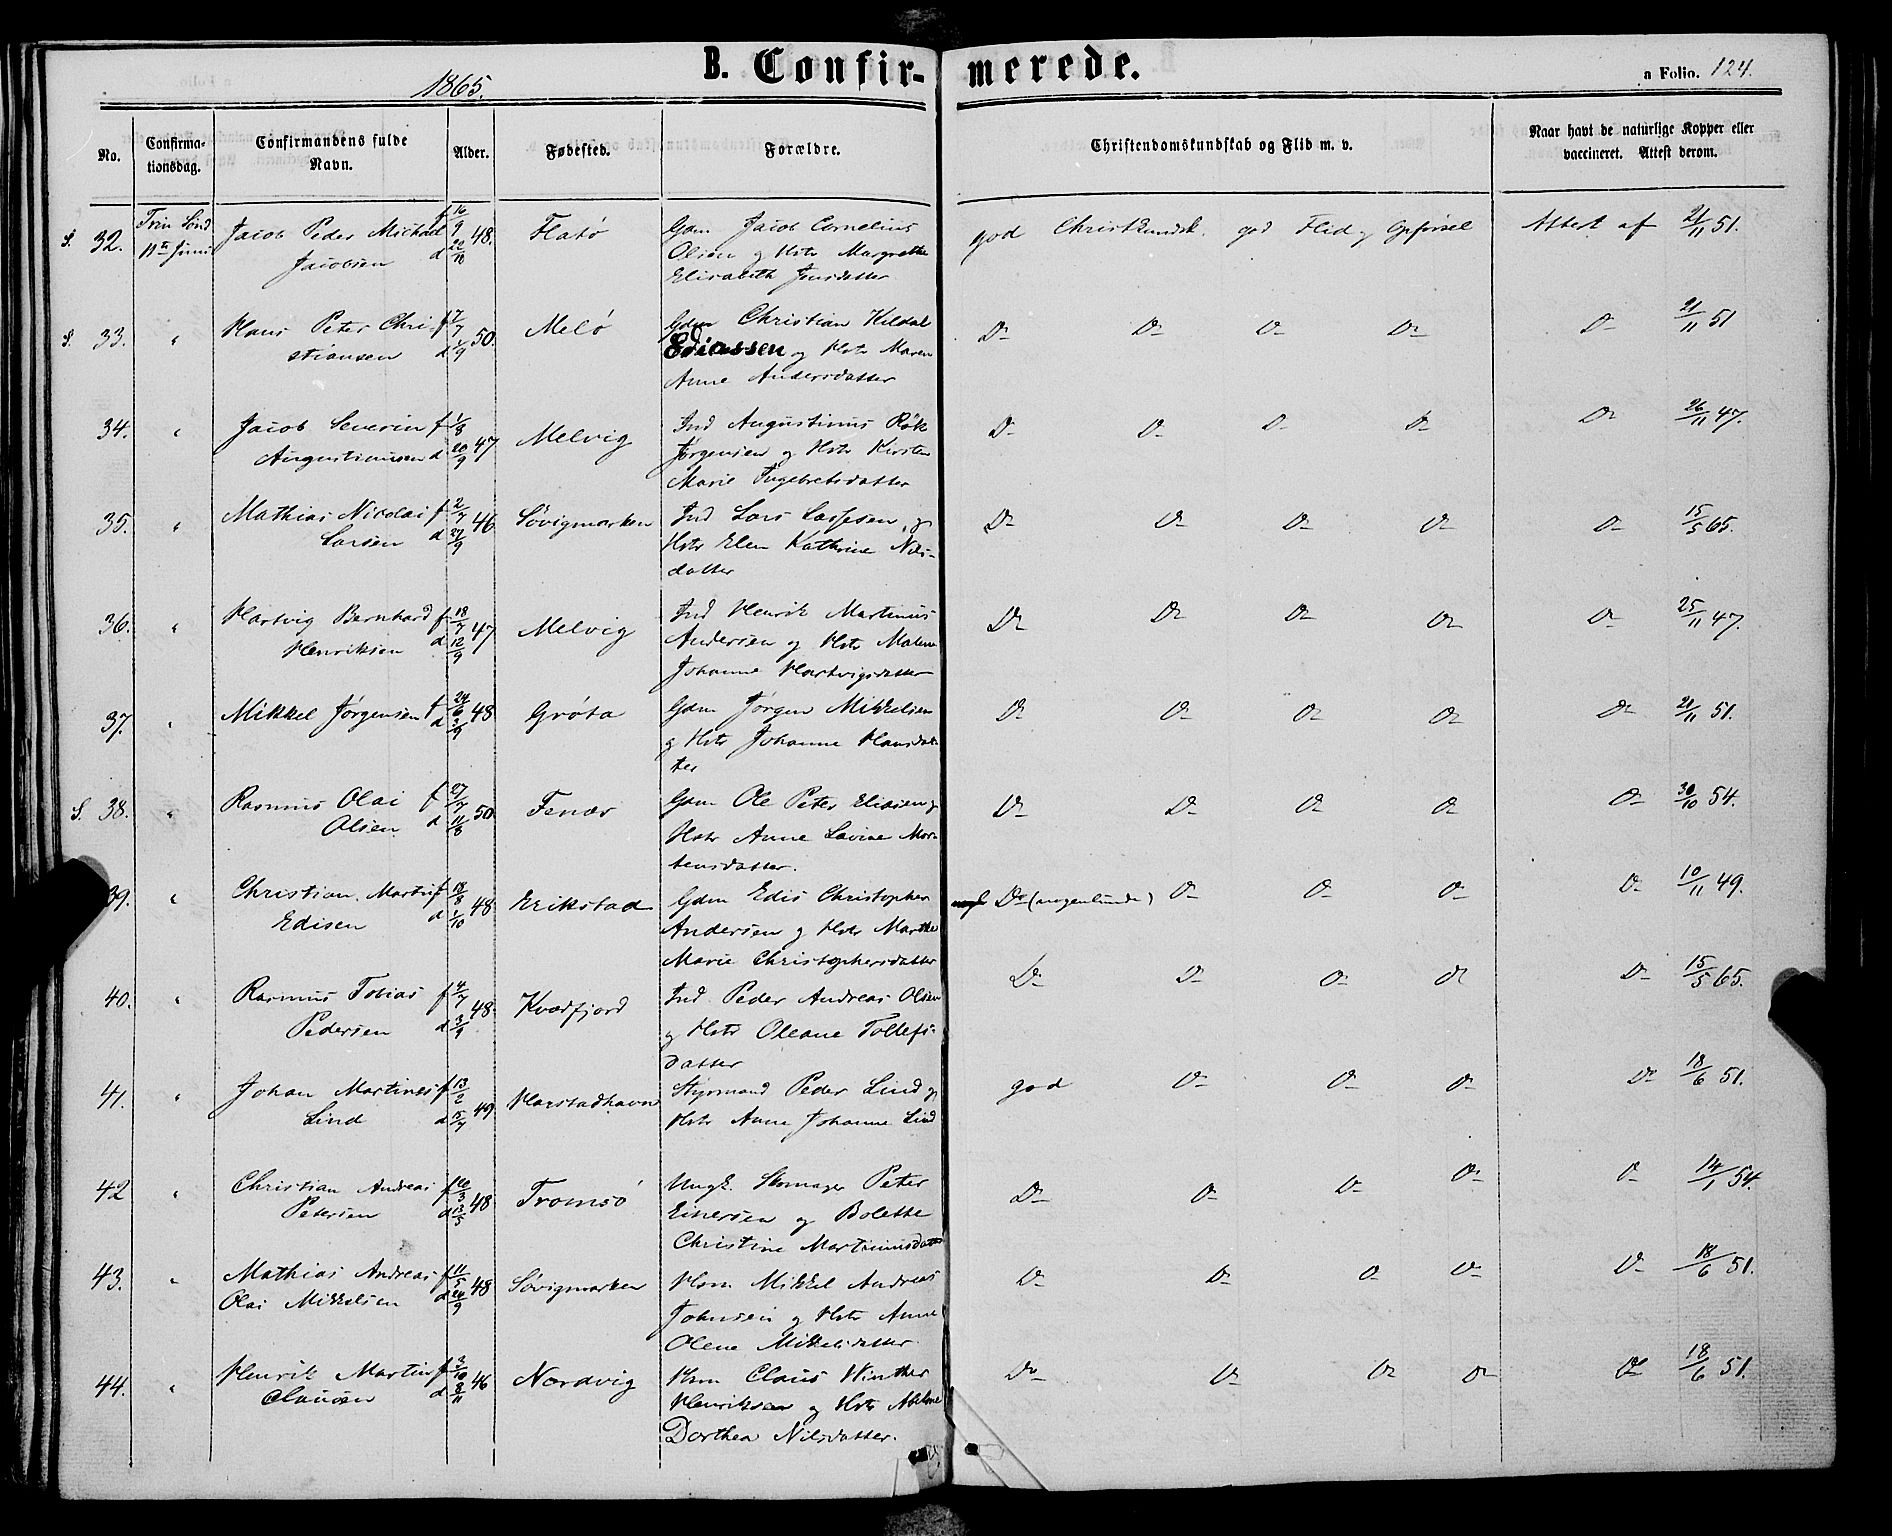 1865.
B. Confir-merede.
a Folio. 124.
No. Confirma-tionsdag. Confirmandens fulde Navn. Alder. Fødested. Forældre. Christendomskundskab og Flid m. v. Naar havt de naturlige Kopper eller vaccineret. Attest derom.
S. 32. Trin Sønd 11te Juni Jacob Peder Michael f 16/9 48. Flatø Gdm Jacob Cornelius god Christkundsk. god Flid og Opførsel Attest af 21/11 51.
Jacobsen d 22/10 Olsen og Hstr Margrethe
Elisabeth Jensdatter
S. 33. " Hans Peter Chri- f 7/7 50. Melø Gdm Christian Kildal D- D- D- D- D- 21/11 51
stiansen d 1/9 Ediassen og Hstr Maren
Anne Andersdatter
34. " Jacob Severin f 1/8 47 Melvig Ind Augustinus Røk D- D- D- D- D- 26/11 47.
Augustinusen d 20/9 Jørgensen og Hstr Kirsten
Marie Ingebretsdatter
35. " Mathias Nicolai f 2/7 46 Søvigmarken Ind Lars Larsen og D- D- D- D- D- 15/5 65.
Larsen d 29/9 Hstr Elen Kathrine Nils-
datter
36. " Hartvig Bernhard f 18/7 47 Melvig Ind Henrik Martinus D- D- D- D- D- 25/11 47.
Henriksen d 12/9 Andersen og Hstr Malene
Johanne Hartvigsdatter
37. " Mikkel Jørgensen f 24/6 48 Grøta Gdm Jørgen Mikkelsen D- D- D- D- D- 21/11 51.
d 3/9 og Hstr Johanne Hansdat-
ter
S. 38. " Rasmus Olai f 27/7 50 Fenes Gdm Ole Peter Eliasen og D- D- D- D- D- 30/10 54.
Olsen d 11/8 Hstr Anne Lavine Mor-
tensdatter.
39. " Christian Martin f 18/8 48 Erikstad Gdm Edis Christopher D- (nogenlunde) D- D- D- D- 10/11 49.
Edisen d 1/10 Andersen og Hstr Marthe
Marie Christophersdatter
40. " Rasmus Tobias f 4/7 48. Kvædfjord Ind Peder Andreas Olsen D- D- D- D- D- 15/5 65.
Pedersen d 3/9 og Hstr Oleane Tollefs-
datter
41. " Johan Martines f 13/2 49 Harstadhavn Styrmand Peder Lind og god D- D- D- D- 18/6 51.
Lind d 15/7 Hstr Anne Johanne Lind
42 " Christian Andreas f 16/3 48 Tromsø Ungk. Skomager Peter D- D- D- D- D- 14/1 54.
Petersen d 13/5 Einersen og Bolette
Christine Martinusdatter
43. " Mathias Andreas f 11/5 48 Søvigmarken Hsm Mikkel Andreas D- D- D- D- D- 18/6 51.
Olai Mikkelsen d 24/9 Johnsen og Hstr Anne
Olene Mikkelsdatter.
44. " Henrik Martin f 3/10 46 Nordvig Hsm Claus Winther D- D- D- D- D- 18/6 51.
Clausen d 8/11 Henriksen og Hstr
Dorthea Nilsdatter.